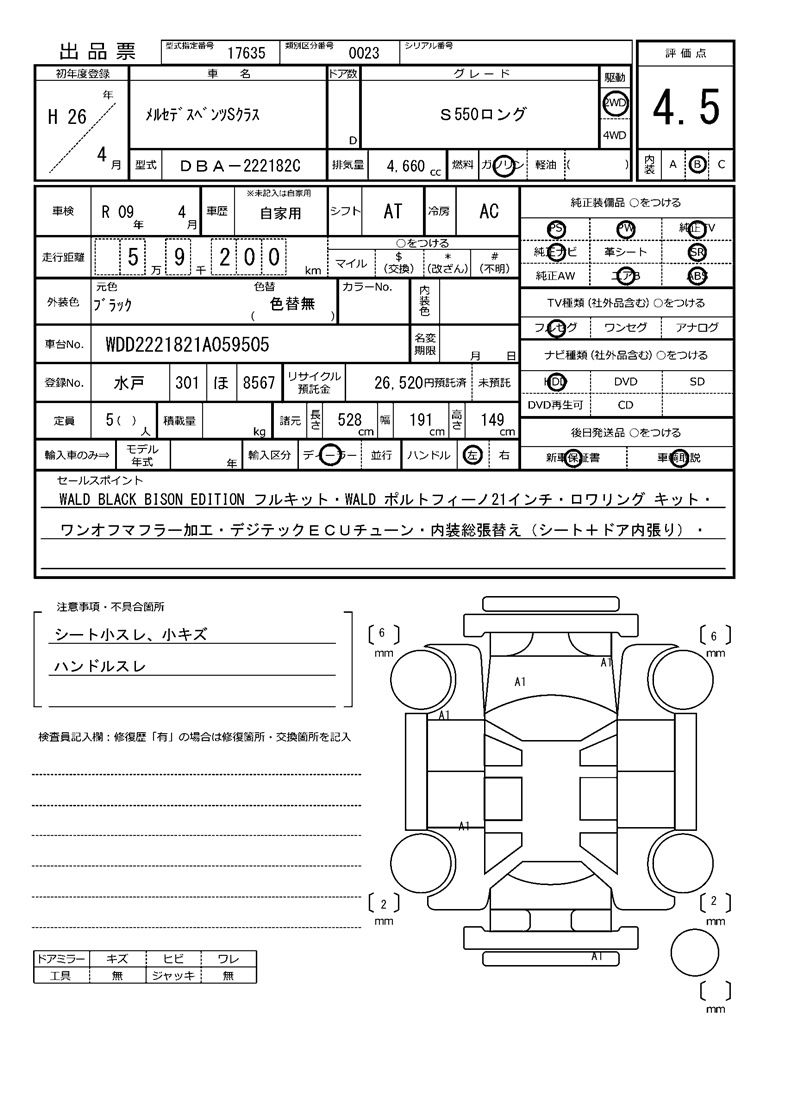 出品票 型式指定番号 17635 類別区分番号 0023 シリアル番号
評価点
4.5
内装 A B C
初年度登録 車名 ドア数 グレード 駆動
H 26 年 4 月
ﾒﾙｾﾃﾞｽﾍﾞﾝﾂSｸﾗｽ D S550ロング
2WD
4WD
型式 DBA-222182C 排気量 4,660 cc 燃料 ガソリン 軽油 ( )
車検 R 09 年 4 月 車歴 ※未記入は自家用 自家用 シフト AT 冷房 AC
走行距離 5 万 9 千 2 0 0 km
○をつける
マイル $(交換) *(改ざん) #(不明)
外装色 元色 ﾌﾞﾗｯｸ 色替 色替無 ( ) カラーNo. 内装色
車台No. WDD2221821A059505 名変期限 月 日
登録No. 水戸 301 ほ 8567 リサイクル預託金 26,520円預託済 未預託
定員 5( ) 人 積載量 kg 諸元 長さ 528 cm 幅 191 cm 高さ 149 cm
輸入車のみ⇒ モデル年式 年 輸入区分 ディーラー 並行 ハンドル 左 右
純正装備品 ○をつける
PS PW 純正TV
純正ナビ 革シート SR
純正AW エアB ABS
TV種類(社外品含む) ○をつける
フルセグ ワンセグ アナログ
ナビ種類(社外品含む) ○をつける
HDD DVD SD
DVD再生可 CD
後日発送品 ○をつける
新車保証書 車輌取説
セールスポイント
WALD BLACK BISON EDITION フルキット・WALD ポルトフィーノ21インチ・ロワリング キット・
ワンオフマフラー加工・デジテックECUチューン・内装総張替え(シート+ドア内張り)・
注意事項・不具合箇所
シート小スレ、小キズ
ハンドルスレ
検査員記入欄:修復歴「有」の場合は修復箇所・交換箇所を記入
ドアミラー キズ ヒビ ワレ
工具 無 ジャッキ 無
6 mm
6 mm
A1
A1
A1
A1
2 mm
2 mm
A1
mm